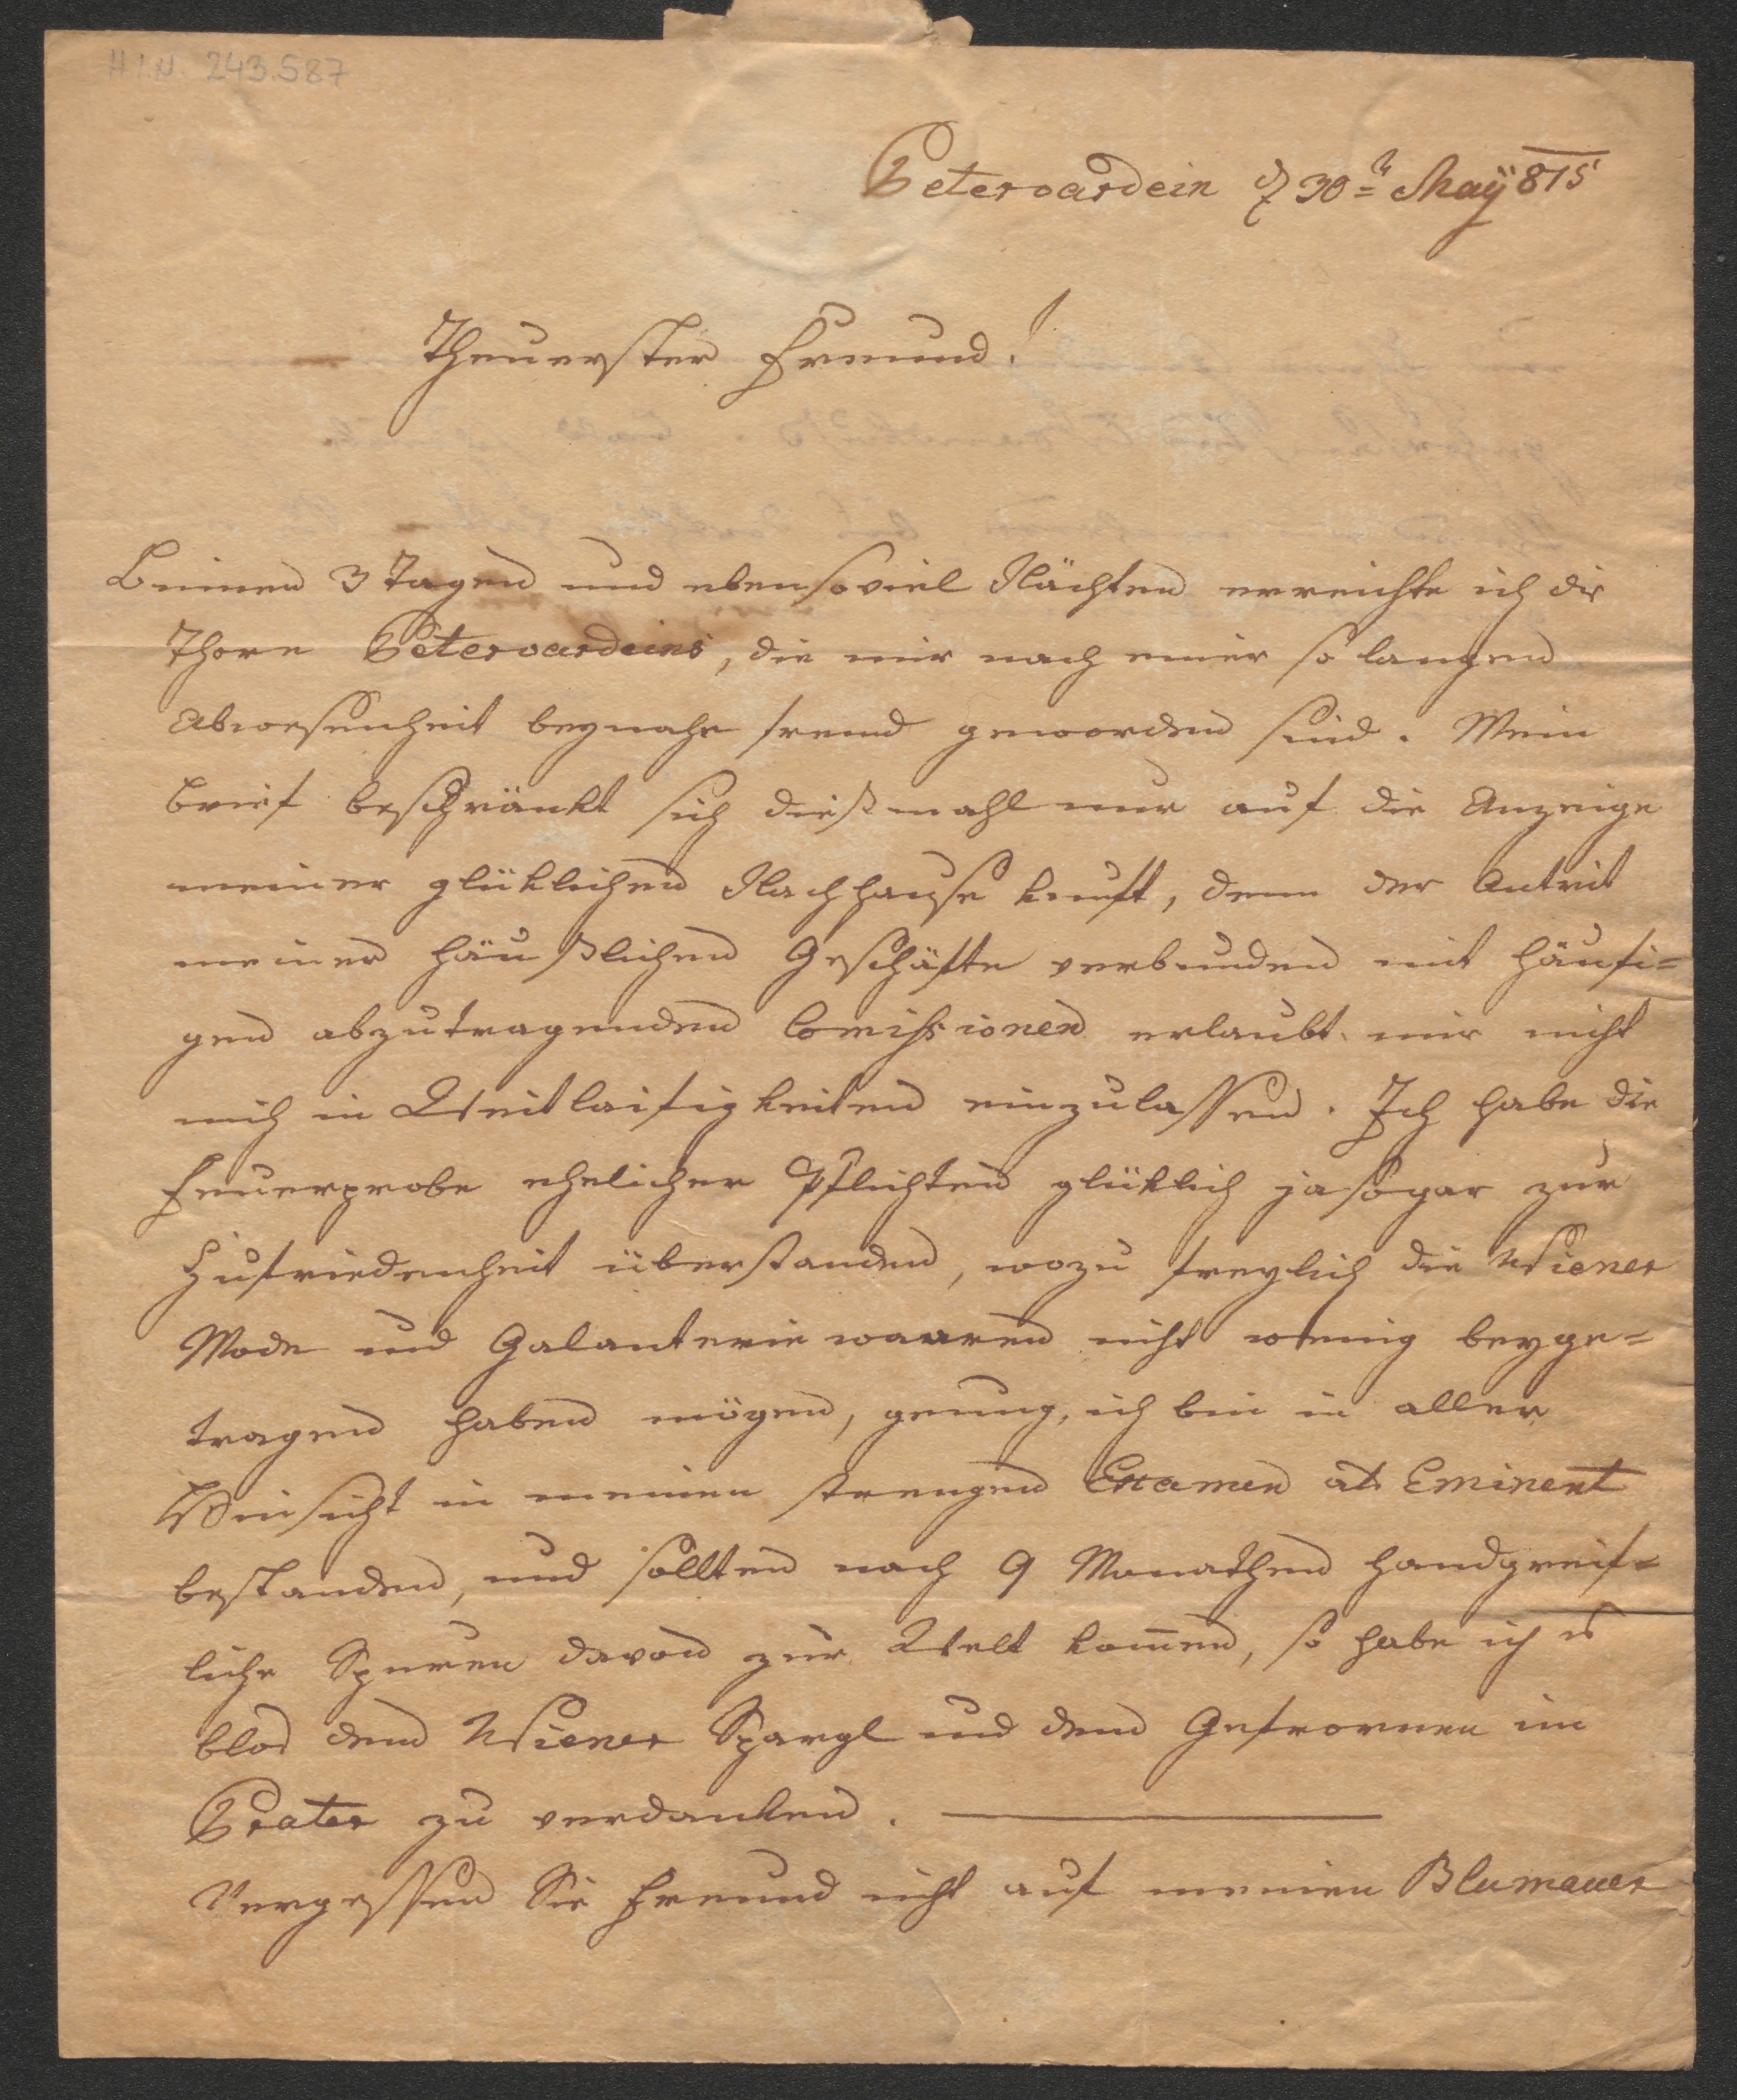 H.I.N. 243.587
Petervardein d 30n May 815
Theuerster Freund!
Binnen 3 Tagen und ebensoviel Nächten erreichte ich die
Thore Petervardeins, die mir nach einer so langen
Abwesenheit beynahe fremd geworden sind. Mein
Brief beschränkt sich dießmahl nur auf die Anzeige
meiner glüklichen Nachhausekunft, denn der Antrit
meiner häußlichen Geschäfte verbunden mit häufi=
gen abzutragenden Comissionen erlaubt mir nicht
mich in Weitlaifigkeiten einzulassen. Ich habe die
Feuerprobe ehelicher Pflichten glüklich ja sogar zur
Zufriedenheit überstanden, wozu freylich die Wiener
Mode und Galanterie waaren nicht wenig beyge=
tragen haben mögen, genung, ich bin in aller
Hinsicht in meinen strengen Examen als Eminent
bestanden, und sollten nach 9 Monathen handgreif=
liche Spuren davon zur Welt kom̅en, so habe ich es
blos dem Wiener Spargl und dem Gefrornen im
Prater zu verdanken.
Vergessen Sie Freund nicht auf meinen Blumauer